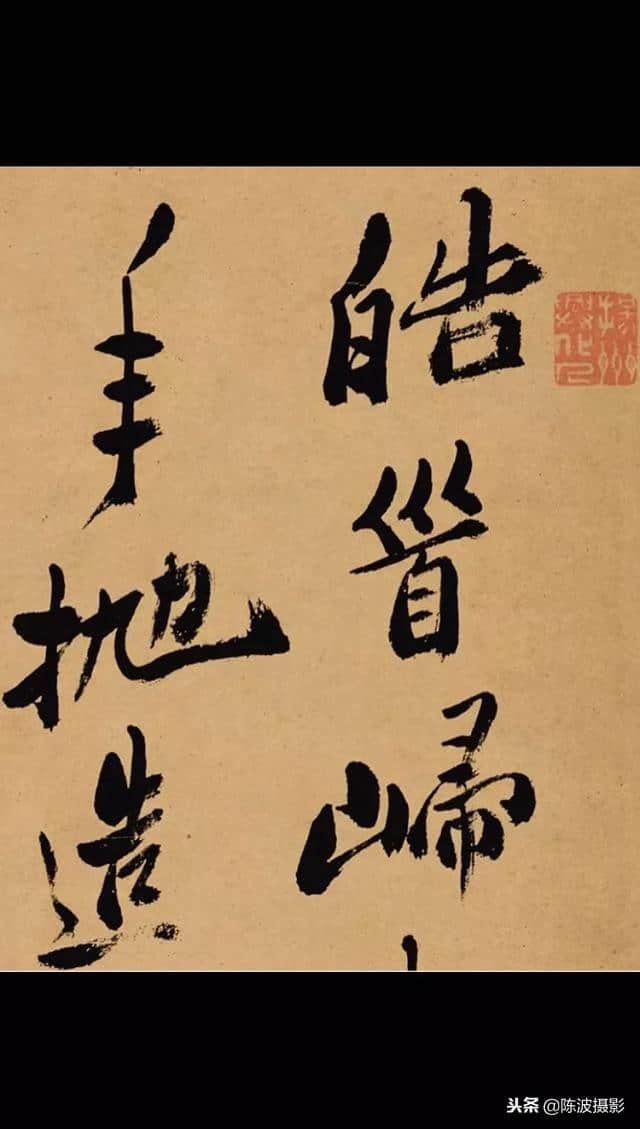 皓首歸
年拋造
头条 @陈波摄影